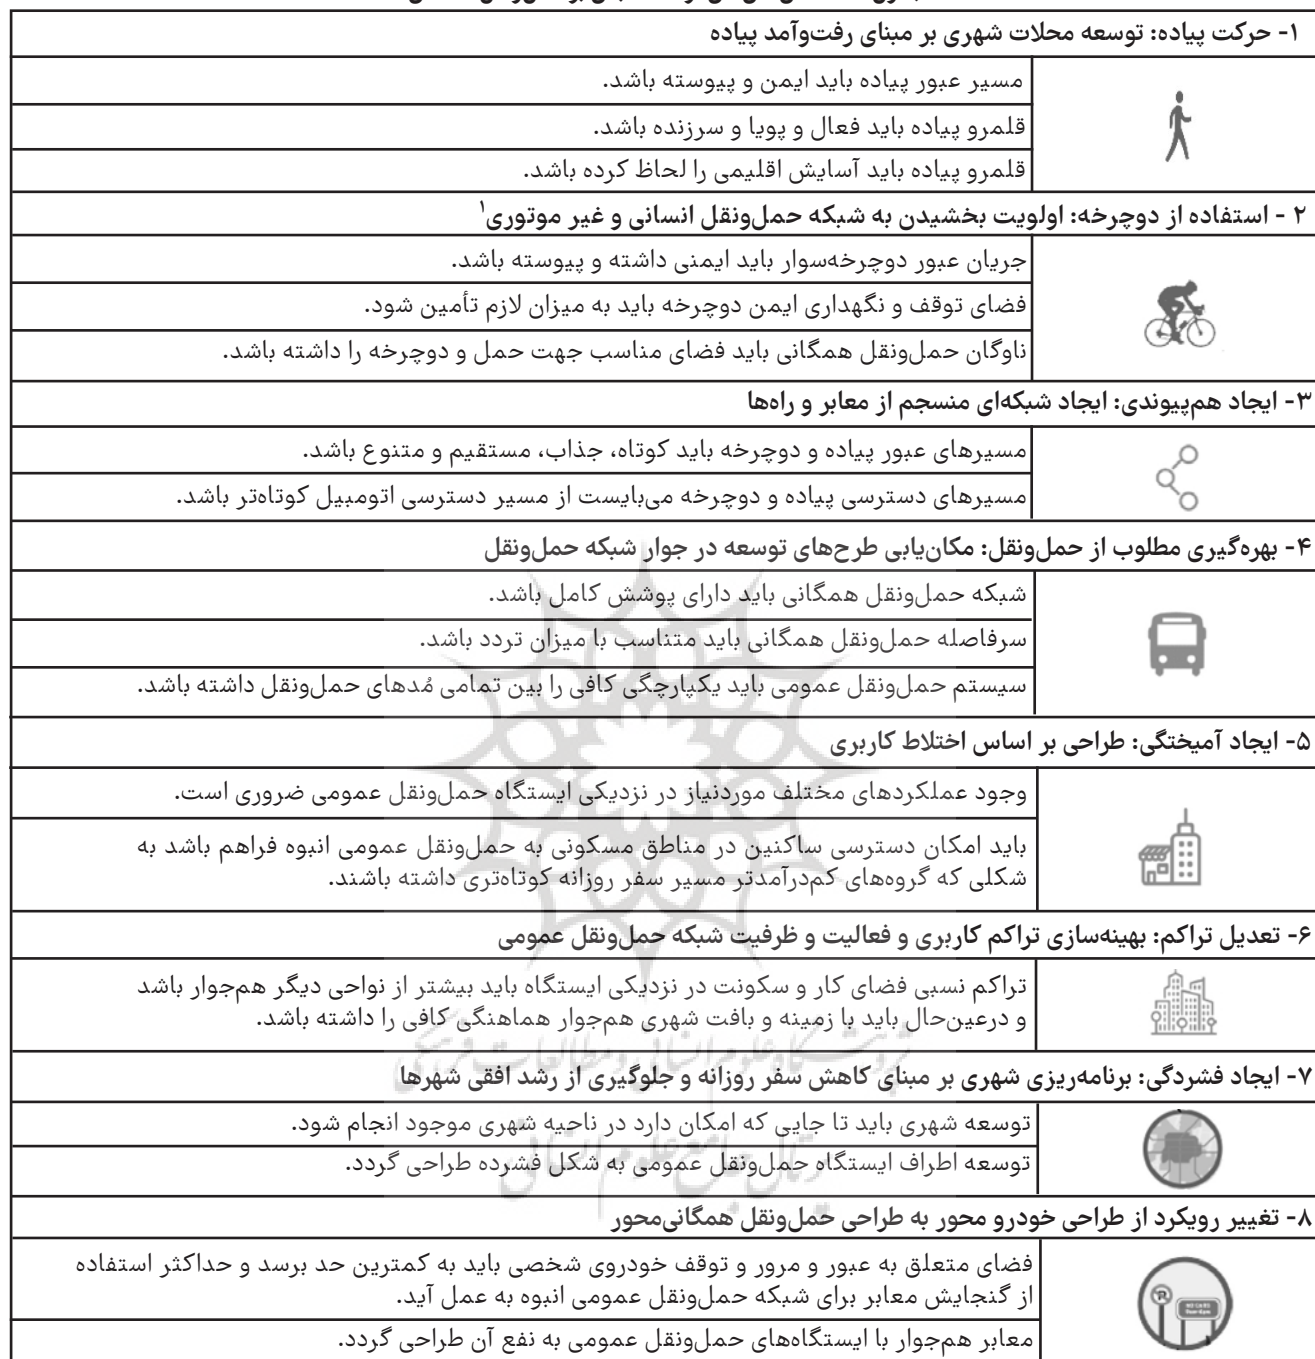 ۱- حرکت پیاده: توسعه محلات شهری بر مبنای رفت‌وآمد پیاده
مسیر عبور پیاده باید ایمن و پیوسته باشد.
قلمرو پیاده باید فعال و پویا و سرزنده باشد.
قلمرو پیاده باید آسایش اقلیمی را لحاظ کرده باشد.
۲ - استفاده از دوچرخه: اولویت بخشیدن به شبکه حمل‌ونقل انسانی و غیر موتوری۱
جریان عبور دوچرخه‌سوار باید ایمنی داشته و پیوسته باشد.
فضای توقف و نگهداری ایمن دوچرخه باید به میزان لازم تأمین شود.
ناوگان حمل‌ونقل همگانی باید فضای مناسب جهت حمل و دوچرخه را داشته باشد.
۳- ایجاد هم‌پیوندی: ایجاد شبکه‌ای منسجم از معابر و راه‌ها
مسیرهای عبور پیاده و دوچرخه باید کوتاه، جذاب، مستقیم و متنوع باشد.
مسیرهای دسترسی پیاده و دوچرخه می‌بایست از مسیر دسترسی اتومبیل کوتاه‌تر باشد.
۴- بهره‌گیری مطلوب از حمل‌ونقل: مکان‌یابی طرح‌های توسعه در جوار شبکه حمل‌ونقل
شبکه حمل‌ونقل همگانی باید دارای پوشش کامل باشد.
سرفاصله حمل‌ونقل همگانی باید متناسب با میزان تردد باشد.
سیستم حمل‌ونقل عمومی باید یکپارچگی کافی را بین تمامی مُدهای حمل‌ونقل داشته باشد.
۵- ایجاد آمیختگی: طراحی بر اساس اختلاط کاربری
وجود عملکردهای مختلف موردنیاز در نزدیکی ایستگاه حمل‌ونقل عمومی ضروری است.
باید امکان دسترسی ساکنین در مناطق مسکونی به حمل‌ونقل عمومی انبوه فراهم باشد به
شکلی که گروه‌های کم‌درآمدتر مسیر سفر روزانه کوتاه‌تری داشته باشند.
۶- تعدیل تراکم: بهینه‌سازی تراکم کاربری و فعالیت و ظرفیت شبکه حمل‌ونقل عمومی
تراکم نسبی فضای کار و سکونت در نزدیکی ایستگاه باید بیشتر از نواحی دیگر هم‌جوار باشد
و درعین‌حال باید با زمینه و بافت شهری هم‌جوار هماهنگی کافی را داشته باشد.
پژوهشگاه علوم انسانی و مطالعات فرهنگی
۷- ایجاد فشردگی: برنامه‌ریزی شهری بر مبنای کاهش سفر روزانه و جلوگیری از رشد افقی شهرها
توسعه شهری باید تا جایی که امکان دارد در ناحیه شهری موجود انجام شود.
توسعه اطراف ایستگاه حمل‌ونقل عمومی به شکل فشرده طراحی گردد.
پرتال جامع علوم انسانی
۸- تغییر رویکرد از طراحی خودرو محور به طراحی حمل‌ونقل همگانی‌محور
فضای متعلق به عبور و مرور و توقف خودروی شخصی باید به کمترین حد برسد و حداکثر استفاده
از گنجایش معابر برای شبکه حمل‌ونقل عمومی انبوه به عمل آید.
معابر هم‌جوار با ایستگاه‌های حمل‌ونقل عمومی به نفع آن طراحی گردد.